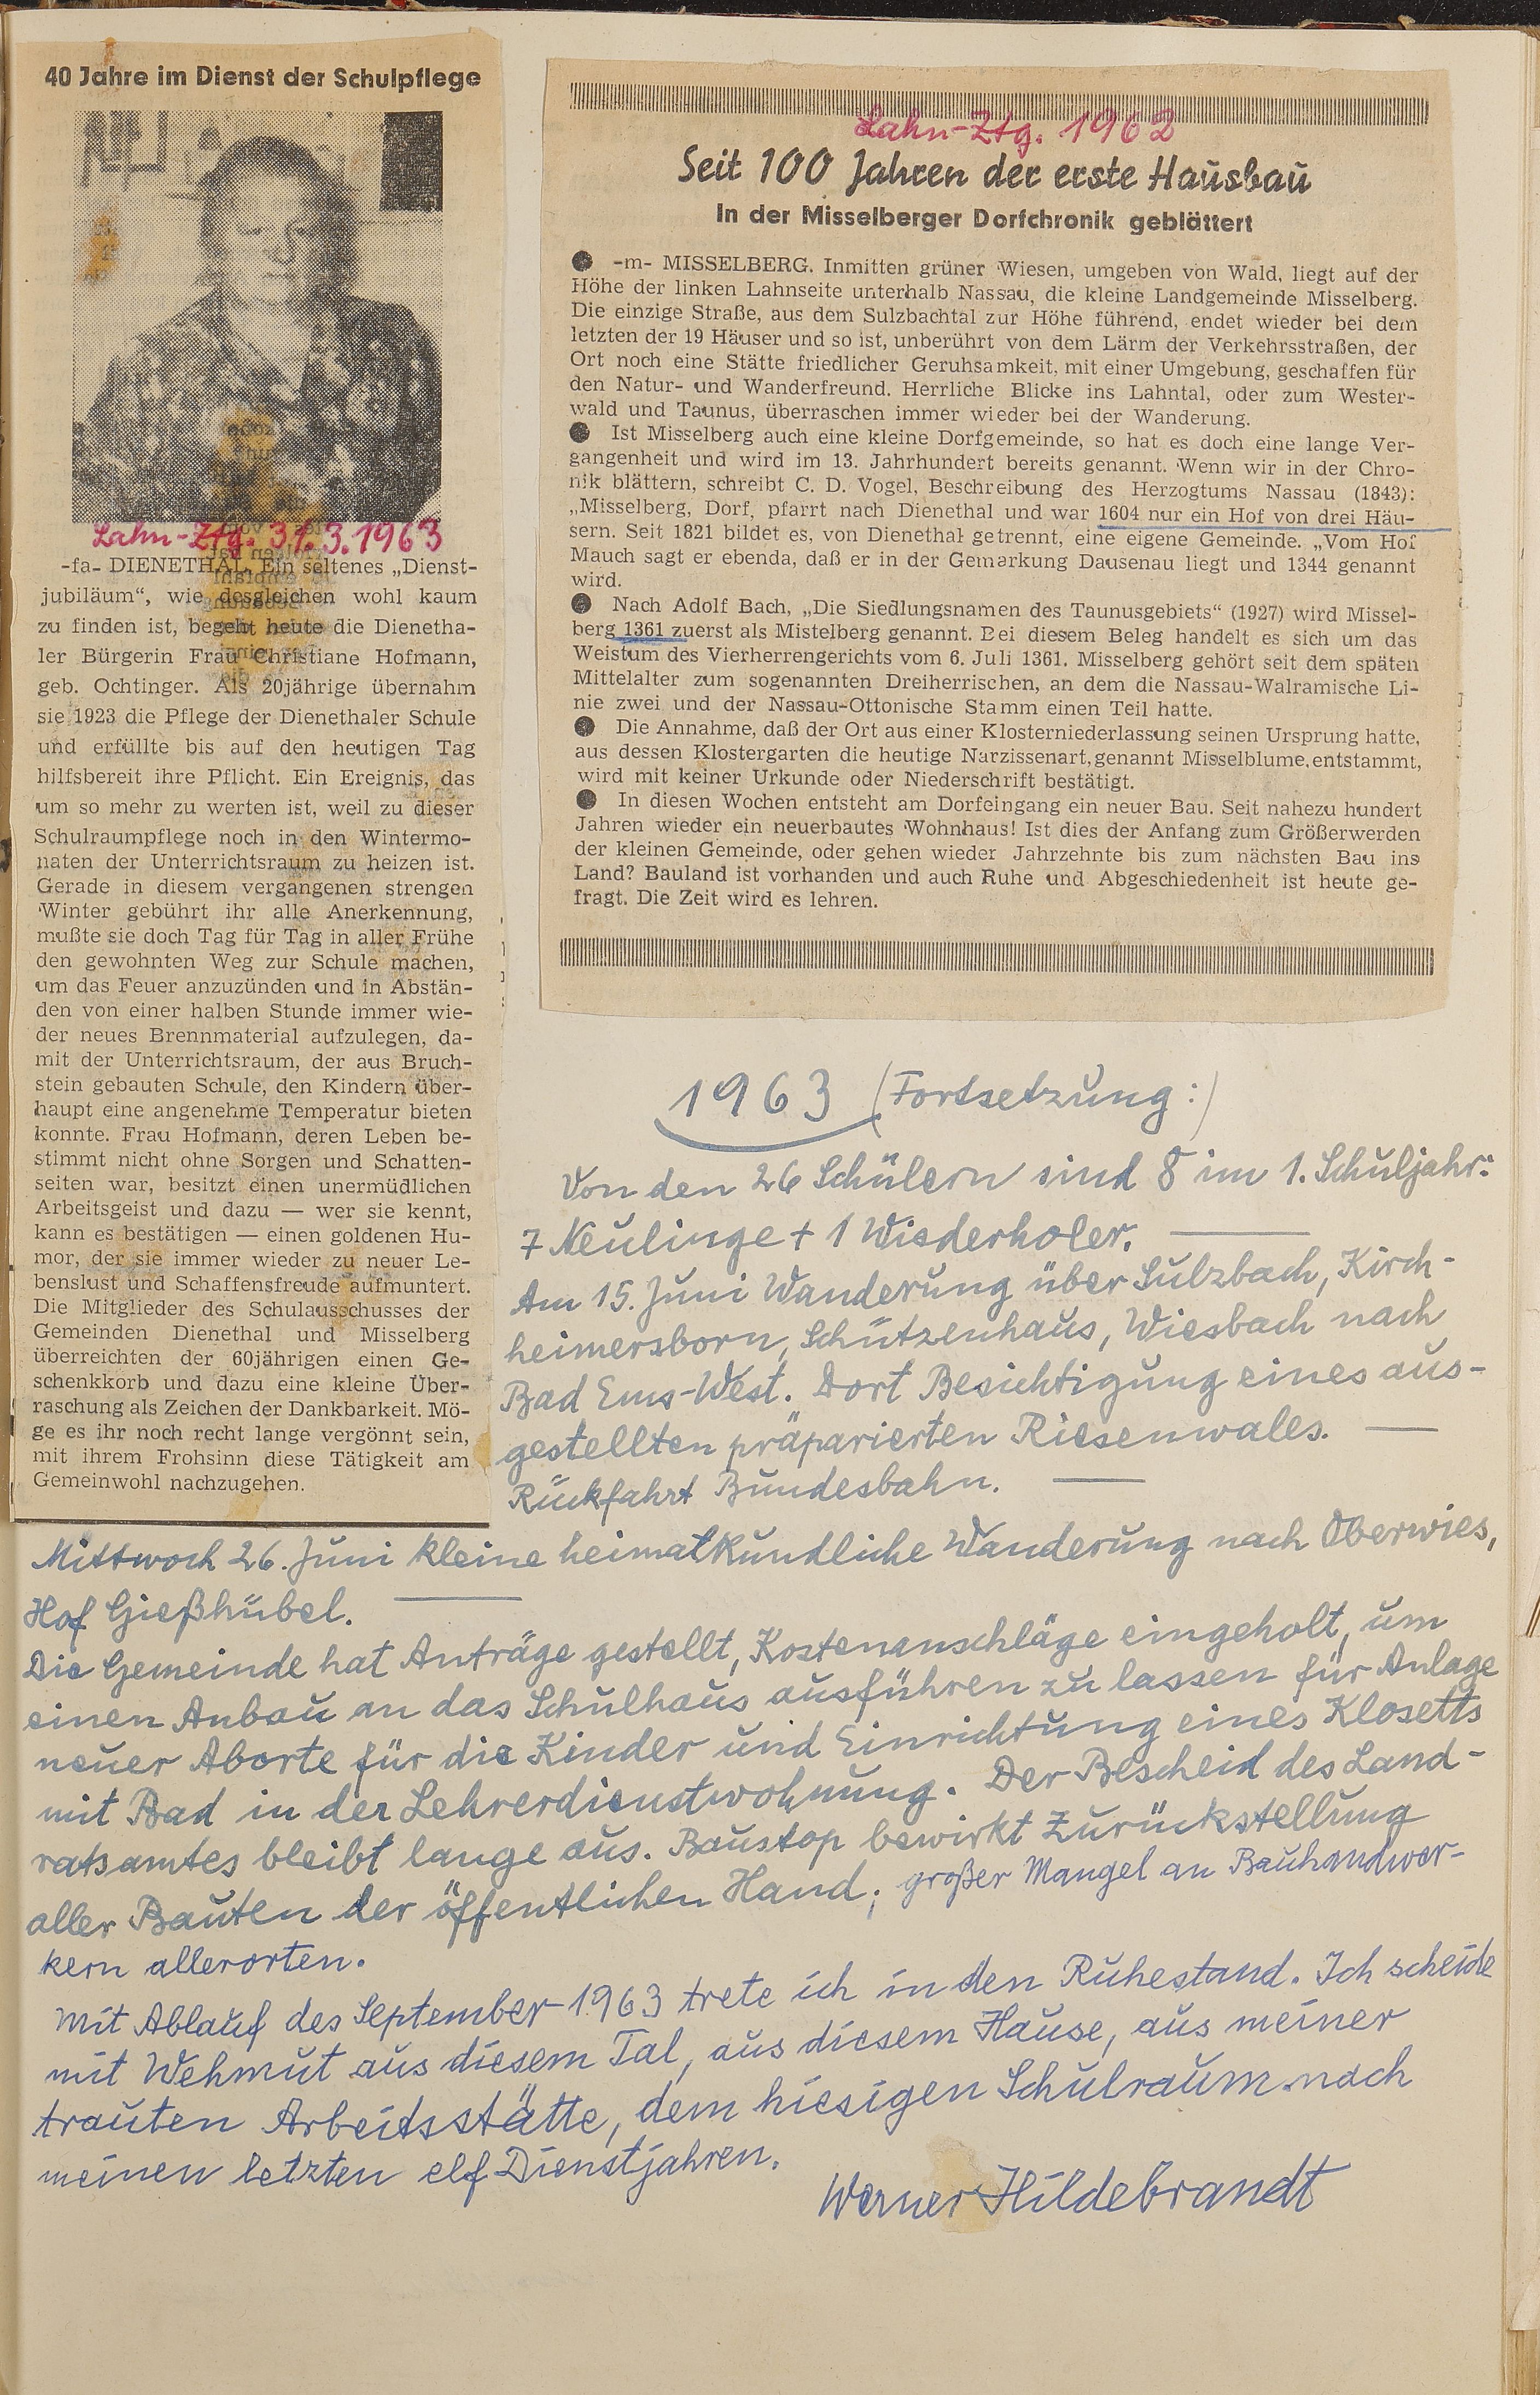 40 Jahre im Dienst der Schulpflege
Lahn-Ztg. 31.3.1963
-fa- DIENETHAL. Ein seltenes „Dienst-
jubiläum“, wie desgleichen wohl kaum
zu finden ist, begeht heute die Dienetha-
ler Bürgerin Frau Christiane Hofmann,
geb. Ochtinger. Als 20jährige übernahm
sie 1923 die Pflege der Dienethaler Schule
und erfüllte bis auf den heutigen Tag
hilfsbereit ihre Pflicht. Ein Ereignis, das
um so mehr zu werten ist, weil zu dieser
Schulraumpflege noch in den Wintermo-
naten der Unterrichtsraum zu heizen ist.
Gerade in diesem vergangenen strengen
Winter gebührt ihr alle Anerkennung,
mußte sie doch Tag für Tag in aller Frühe
den gewohnten Weg zur Schule machen,
um das Feuer anzuzünden und in Abstän-
den von einer halben Stunde immer wie-
der neues Brennmaterial aufzulegen, da-
mit der Unterrichtsraum, der aus Bruch-
stein gebauten Schule, den Kindern über-
haupt eine angenehme Temperatur bieten
konnte. Frau Hofmann, deren Leben be-
stimmt nicht ohne Sorgen und Schatten-
seiten war, besitzt einen unermüdlichen
Arbeitsgeist und dazu — wer sie kennt,
kann es bestätigen — einen goldenen Hu-
mor, der sie immer wieder zu neuer Le-
benslust und Schaffensfreude aufmuntert.
Die Mitglieder des Schulausschusses der
Gemeinden Dienethal und Misselberg
überreichten der 60jährigen einen Ge-
schenkkorb und dazu eine kleine Über-
raschung als Zeichen der Dankbarkeit. Mö-
ge es ihr noch recht lange vergönnt sein,
mit ihrem Frohsinn diese Tätigkeit am
Gemeinwohl nachzugehen.
Lahn-Ztg. 1962
Seit 100 Jahren der erste Hausbau
In der Misselberger Dorfchronik geblättert
● -m- MISSELBERG. Inmitten grüner Wiesen, umgeben von Wald, liegt auf der
Höhe der linken Lahnseite unterhalb Nassau, die kleine Landgemeinde Misselberg.
Die einzige Straße, aus dem Sulzbachtal zur Höhe führend, endet wieder bei dem
letzten der 19 Häuser und so ist, unberührt von dem Lärm der Verkehrsstraßen, der
Ort noch eine Stätte friedlicher Geruhsamkeit, mit einer Umgebung, geschaffen für
den Natur- und Wanderfreund. Herrliche Blicke ins Lahntal, oder zum Wester-
wald und Taunus, überraschen immer wieder bei der Wanderung.
● Ist Misselberg auch eine kleine Dorfgemeinde, so hat es doch eine lange Ver-
gangenheit und wird im 13. Jahrhundert bereits genannt. Wenn wir in der Chro-
nik blättern, schreibt C. D. Vogel, Beschreibung des Herzogtums Nassau (1843):
„Misselberg, Dorf, pfarrt nach Dienethal und war 1604 nur ein Hof von drei Häu-
sern. Seit 1821 bildet es, von Dienethal getrennt, eine eigene Gemeinde. „Vom Hof
Mauch sagt er ebenda, daß er in der Gemarkung Dausenau liegt und 1344 genannt
wird.
● Nach Adolf Bach, „Die Siedlungsnamen des Taunusgebiets“ (1927) wird Missel-
berg 1361 zuerst als Mistelberg genannt. Bei diesem Beleg handelt es sich um das
Weistum des Vierherrengerichts vom 6. Juli 1361. Misselberg gehört seit dem späten
Mittelalter zum sogenannten Dreiherrischen, an dem die Nassau-Walramische Li-
nie zwei und der Nassau-Ottonische Stamm einen Teil hatte.
● Die Annahme, daß der Ort aus einer Klosterniederlassung seinen Ursprung hatte,
aus dessen Klostergarten die heutige Narzissenart, genannt Misselblume, entstammt,
wird mit keiner Urkunde oder Niederschrift bestätigt.
● In diesen Wochen entsteht am Dorfeingang ein neuer Bau. Seit nahezu hundert
Jahren wieder ein neuerbautes Wohnhaus! Ist dies der Anfang zum Größerwerden
der kleinen Gemeinde, oder gehen wieder Jahrzehnte bis zum nächsten Bau ins
Land? Bauland ist vorhanden und auch Ruhe und Abgeschiedenheit ist heute ge-
fragt. Die Zeit wird es lehren.
1963 (Fortsetzung:)
Von den 26 Schülern sind 8 im 1. Schuljahr:
7 Neulinge + 1 Wiederholer. —
Am 15. Juni Wanderung über Sulzbach, Kirch-
heimersborn, Schützenhaus, Wiesbach nach
Bad Ems-West. Dort Besichtigung eines aus-
gestellten präparierten Riesenwales. —
Rückfahrt Bundesbahn. —
Mittwoch 26. Juni kleine heimatkundliche Wanderung nach Oberwies,
Hof Gießhübel. —
Die Gemeinde hat Anträge gestellt, Kostenanschläge eingeholt, um
einen Anbau an das Schulhaus ausführen zu lassen für Anlage
neuer Aborte für die Kinder und Einrichtung eines Klosetts
mit Bad in der Lehrerdienstwohnung. Der Bescheid des Land-
ratsamtes bleibt lange aus. Baustop bewirkt Zurückstellung
aller Bauten der öffentlichen Hand; großer Mangel an Bauhandwer-
kern allerorten.
Mit Ablauf des September 1963 trete ich in den Ruhestand. Ich scheide
mit Wehmut aus diesem Tal, aus diesem Hause, aus meiner
trauten Arbeitsstätte, dem hiesigen Schulraum nach
meinen letzten elf Dienstjahren.
Werner Hildebrandt